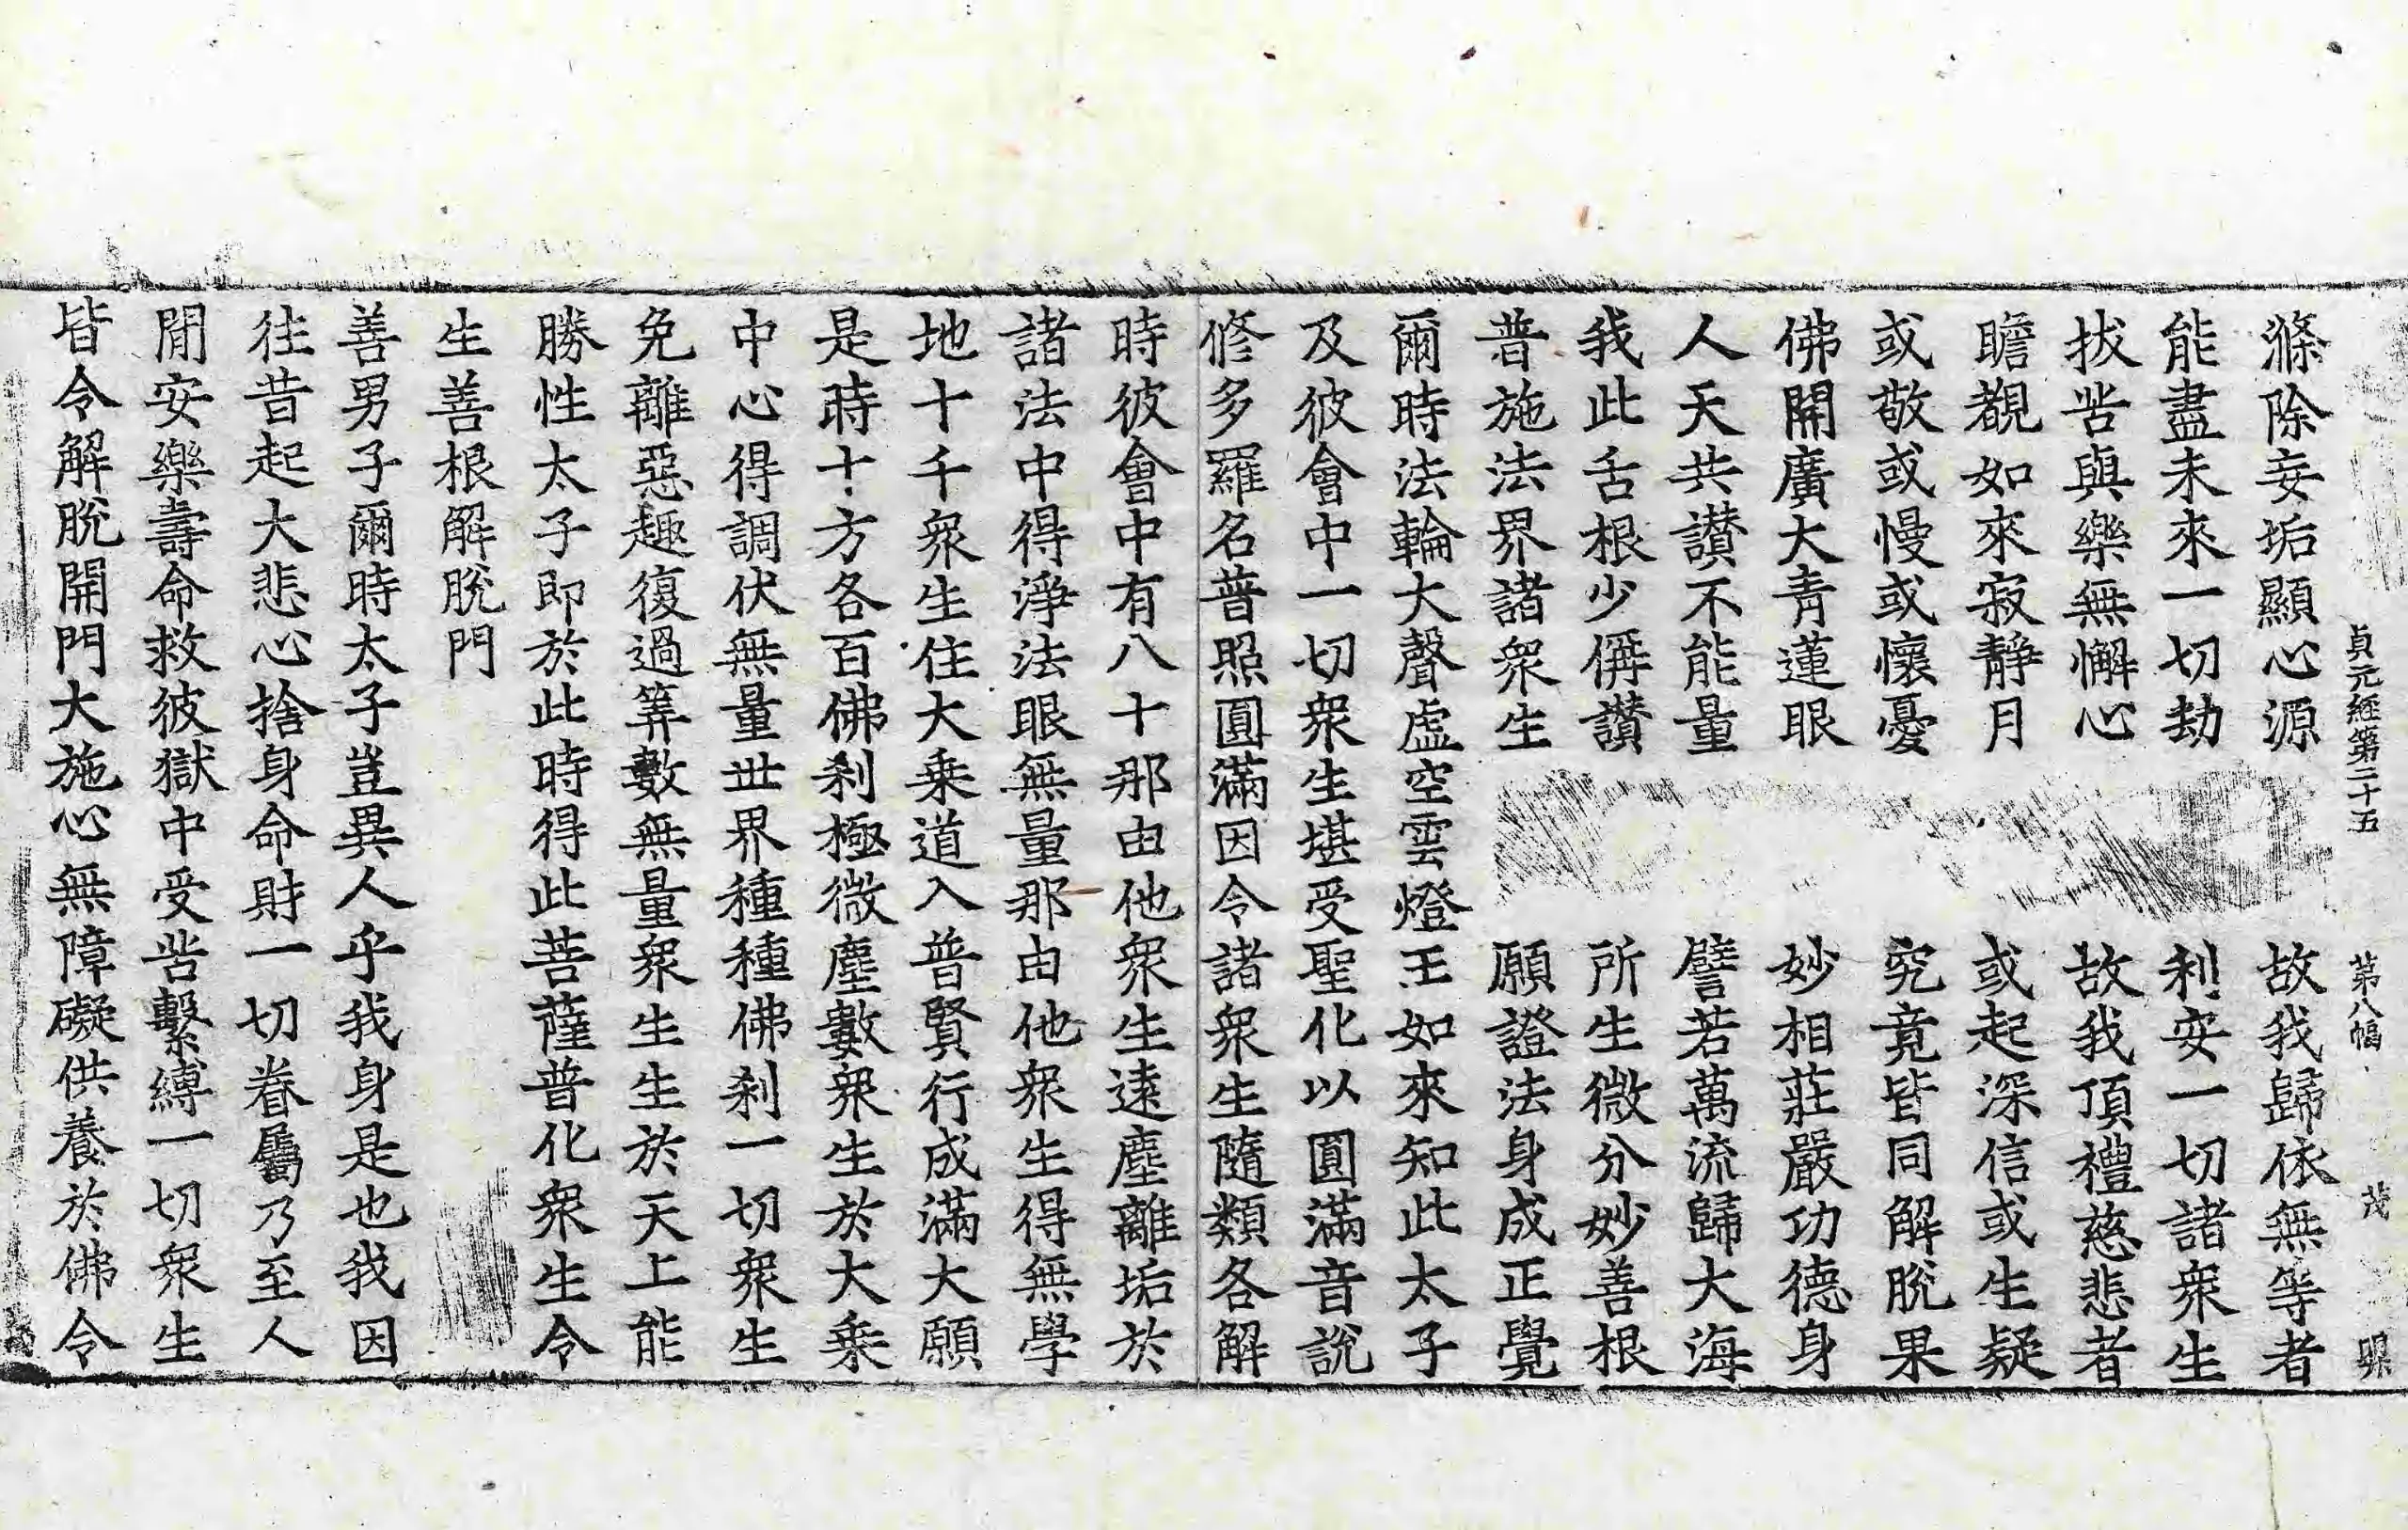 貞元經第二十五　第八幅　茂
滌除妄垢顯心源　故我歸依無等者
能盡未來一切劫　利安一切諸衆生
拔苦與樂無懈心　故我頂禮慈悲者
瞻覩如來寂靜月　或起深信或生疑
或敬或慢或懷憂　究竟皆同解脫果
佛開廣大青蓮眼　妙相莊嚴功德身
人天共讃不能量　譬若萬流歸大海
我此舌根少偁讃　所生微分妙善根
普施法界諸衆生　願證法身成正覺
爾時法輪大聲虛空雲燈王如來知此太子
及彼會中一切衆生堪受聖化以圓滿音說
修多羅名普照圓滿因令諸衆生隨類各解
時彼會中有八十那由他衆生遠塵離垢於
諸法中得淨法眼無量那由他衆生得無學
地十千衆生住大乘道入普賢行成滿大願
是時十方各百佛剎極微塵數衆生於大乘
中心得調伏無量世界種種佛剎一切衆生
免離惡趣復過筭數無量衆生生於天上能
勝性太子即於此時得此菩薩普化衆生令
生善根解脫門
善男子爾時太子豈異人乎我身是也我因
往昔起大悲心捨身命財一切眷屬乃至人
閒安樂壽命救彼獄中受苦繫縛一切衆生
皆令解脫開門大施心無障礙供養於佛令